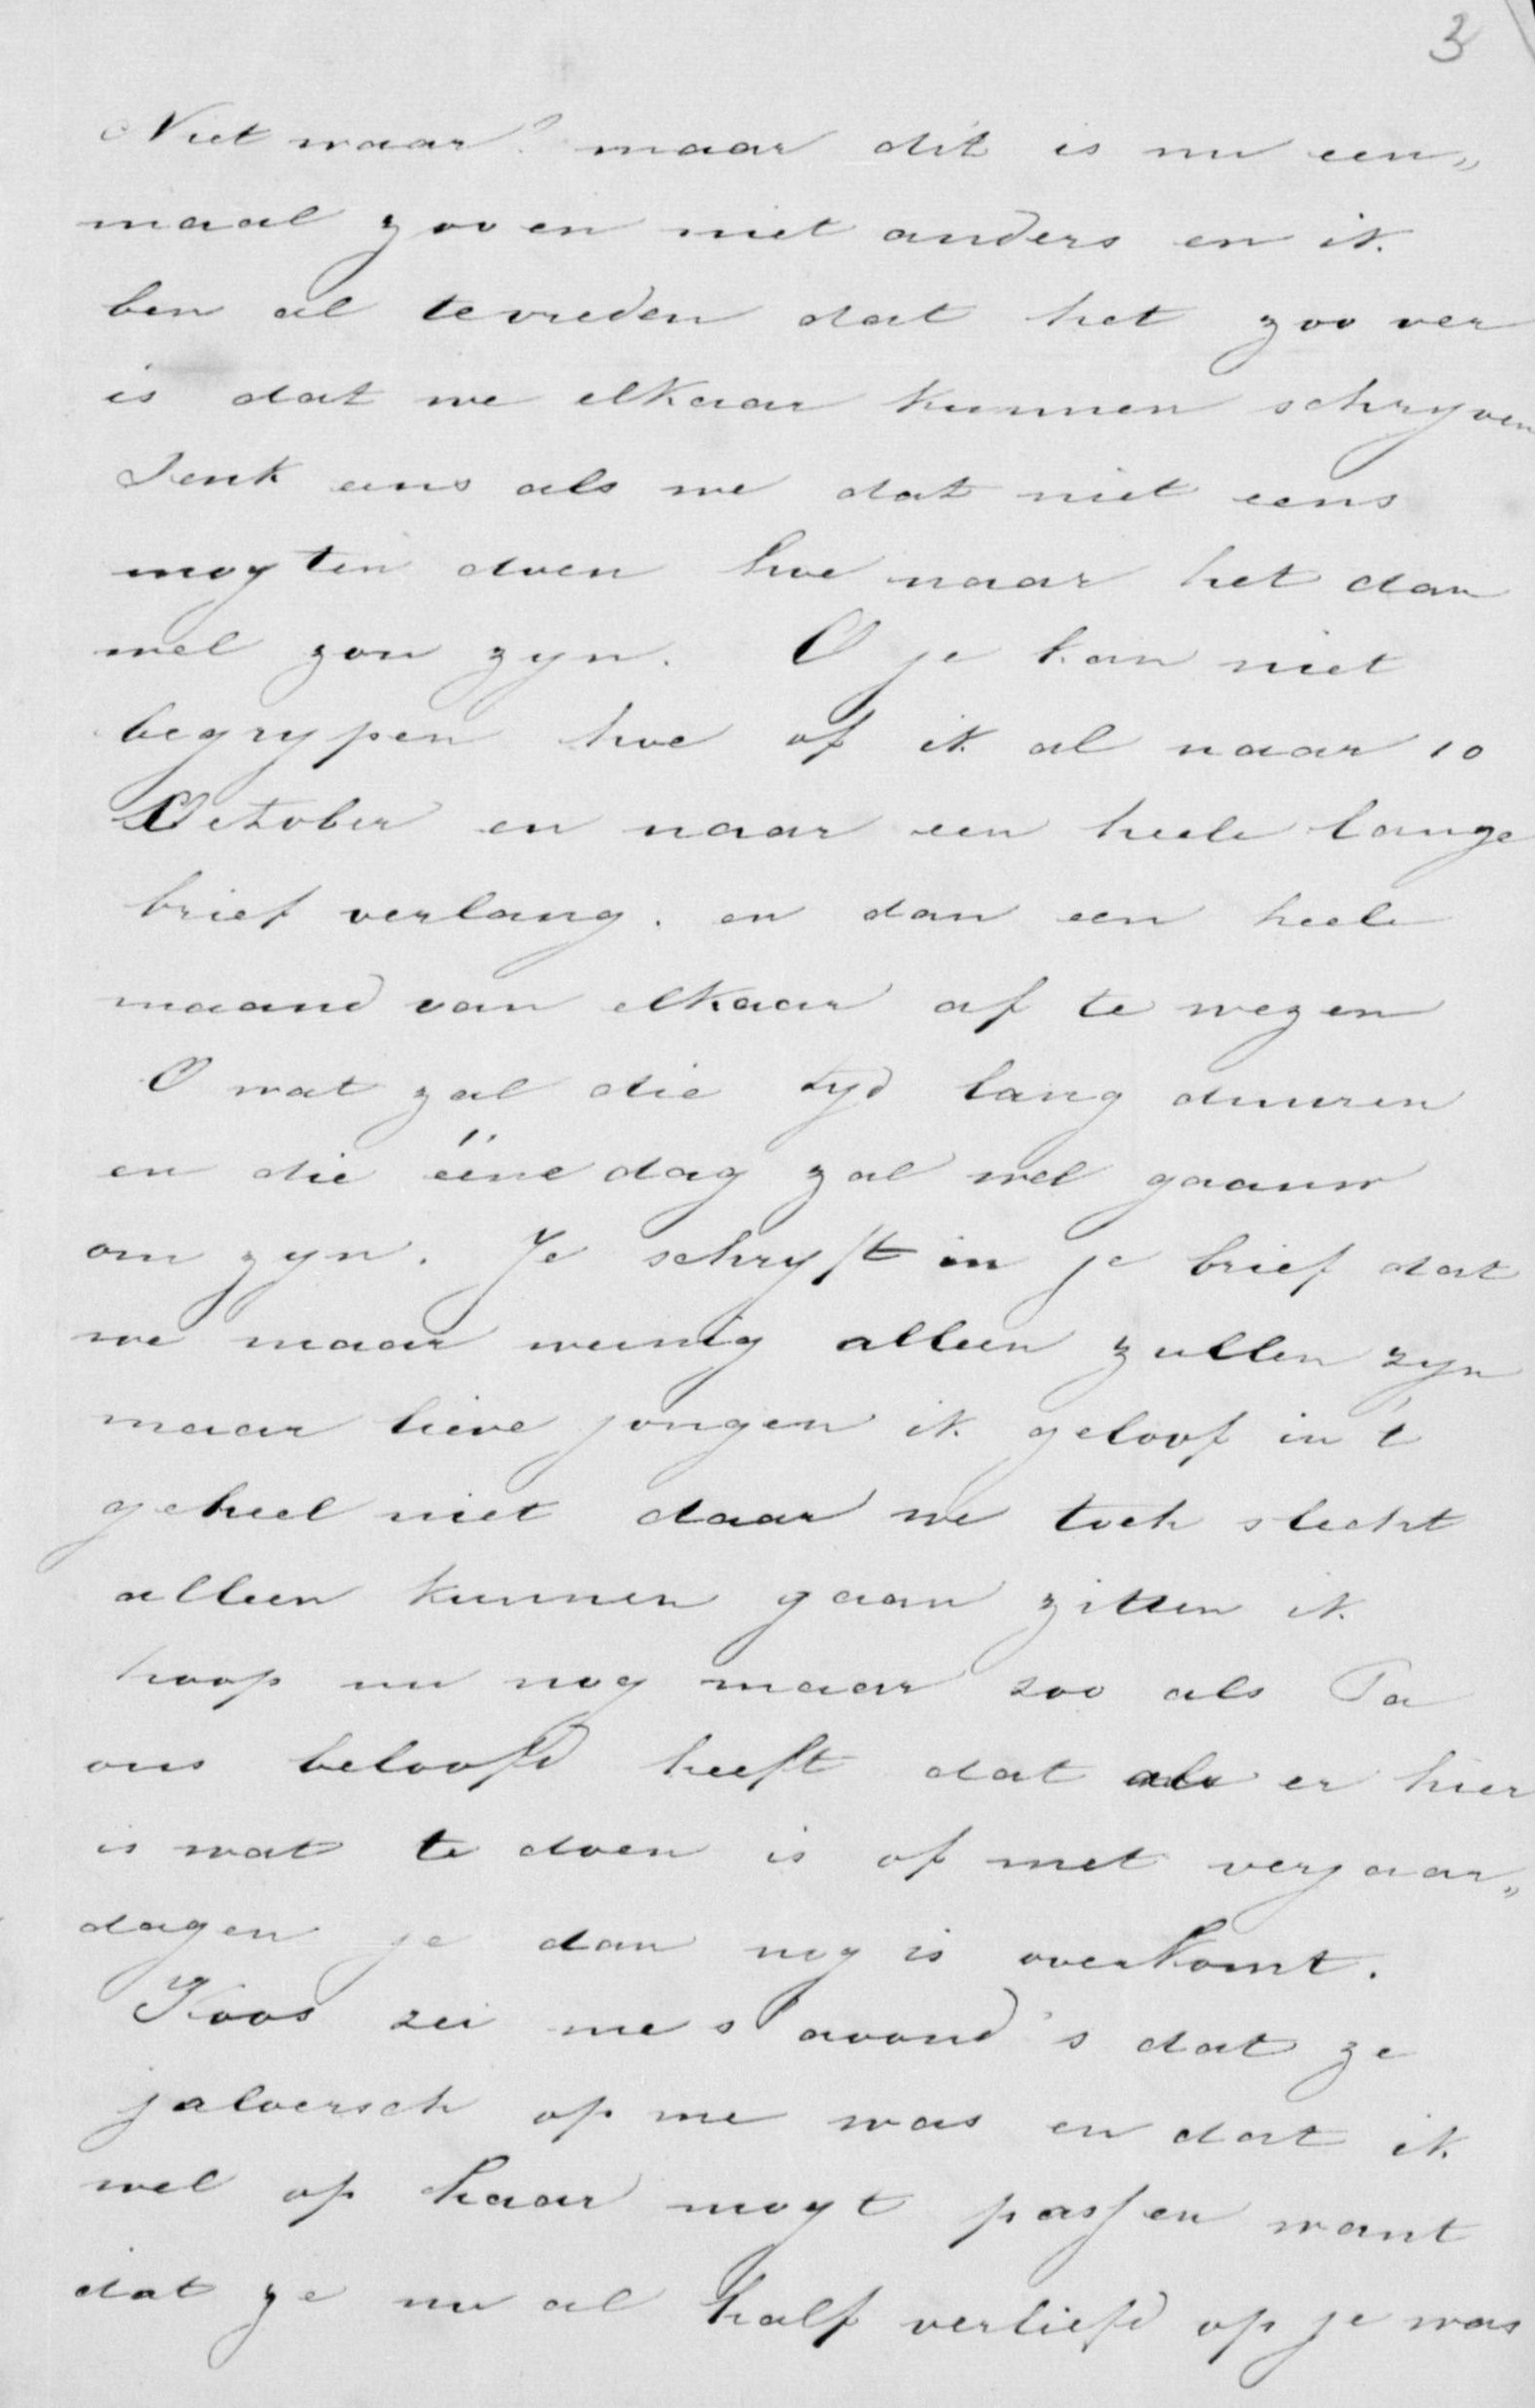 3
Niet waar? maar dit is nu een„
maal zoo en niet anders en ik
ben al tevreden dat het zoo ver
is dat we elkaar kunnen schryven
Denk eens als we dat niet eens
mogten doen hoe naar het dan
wel zou zyn. O je kan niet
begrypen hoe of ik al naar 10
October en naar een heele lange
brief verlang. en dan een heele
maand van elkaar af te wezen
O wat zal die tyd lang duuren
en die ééne dag zal wel gaauw
om zyn. Je schryft in je brief dat
we maar weinig alleen zullen zyn
maar lieve jongen ik geloof in 't
geheel niet daar we toch slecht
alleen kunnen gaan zitten ik
hoop nu nog maar zoo als Pa
ons beloofd heeft dat als er hier
is wat te doen is of met verjaar„
dagen je dan nog is overkomt.
Koos zei me s'avond's dat ze
jaloersch op me was en dat ik
wel op haar mogt passen want
dat ze nu al half verliefd op je was